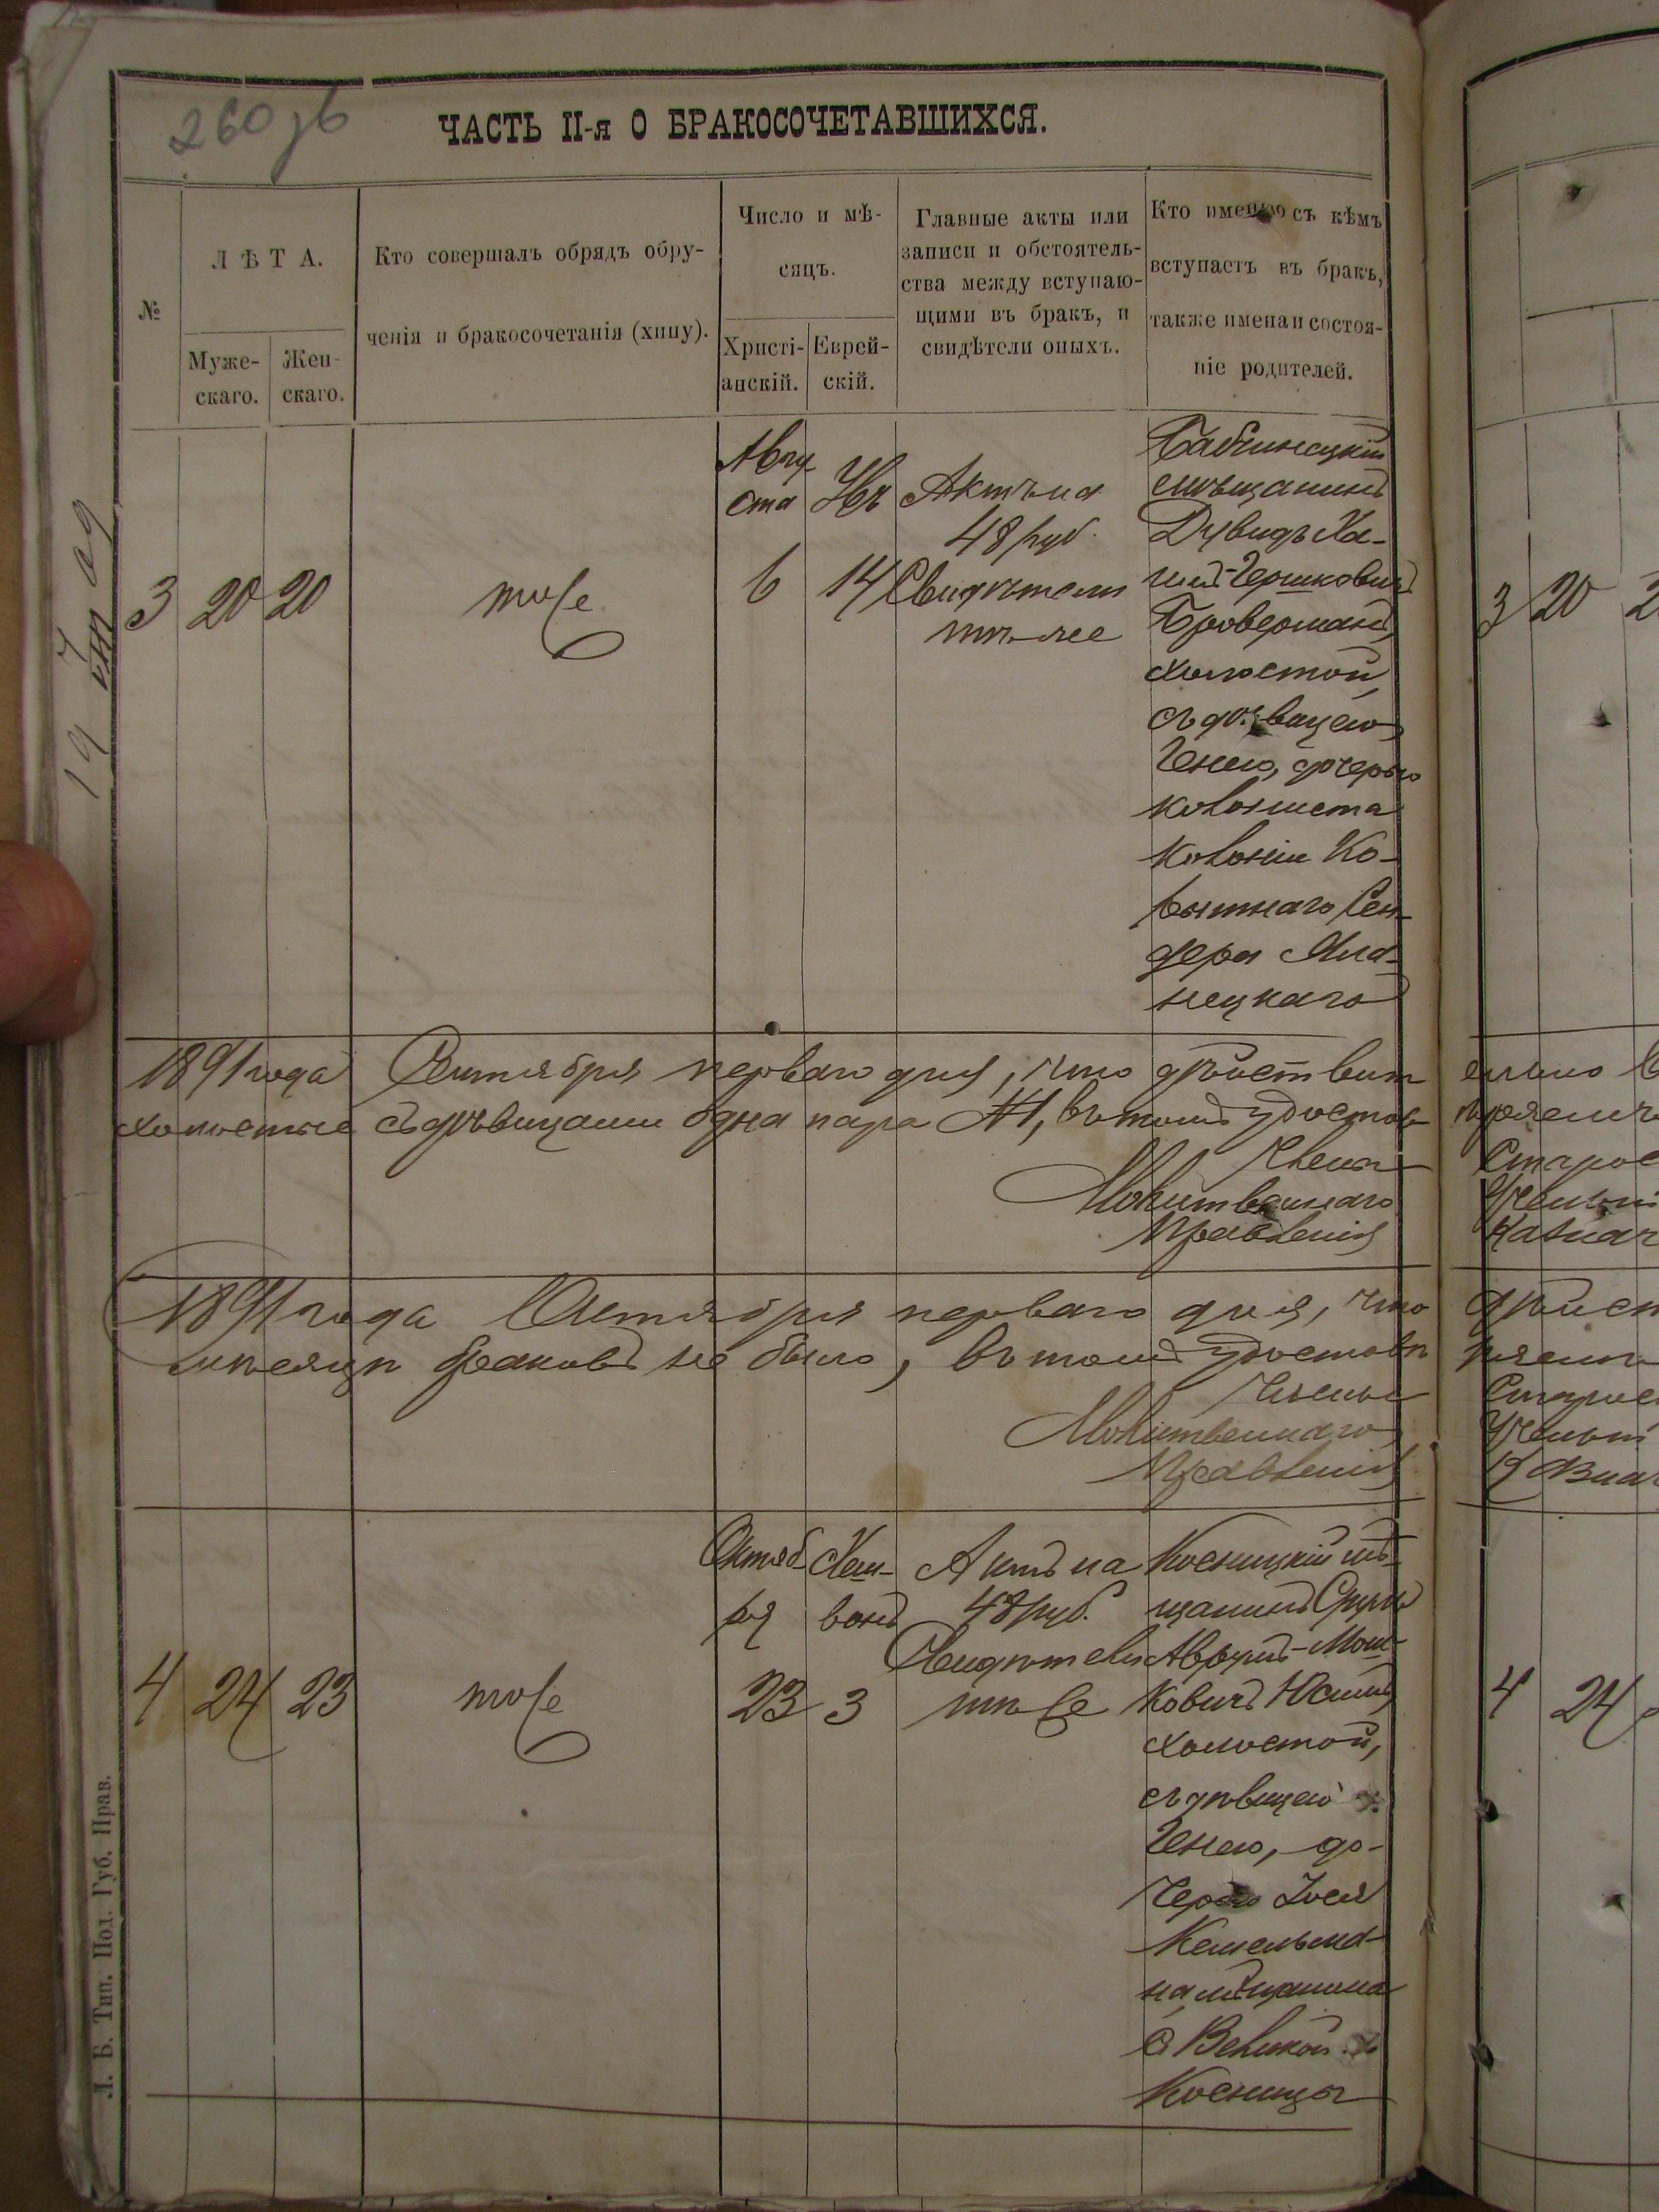 260 зб
ЧАСТЬ II-я О БРАКОСОЧЕТАВШИХСЯ.
№
ЛѢТА.
Муже-
скаго.
Жен-
скаго.
Кто совершалъ обрядъ обру-
ченія и бракосочетанія (хипу).
Число и мѣ-
сяцъ.
Христі-
анскій.
Еврей-
скій.
Главные акты или
записи и обстоятель-
ства между вступаю-
щими въ бракъ, и
свидѣтели оныхъ.
Кто именно съ кѣмъ
вступаетъ въ бракъ,
также имена и состоя-
ніе родителей.
3
20
20
тоже
Авгу
ста
6
14
Актъ на
48 руб.
Свидѣтели
тѣ-же
Бабчинецкій
мѣщанинъ
Дувидъ Ха-
имъ-Гершковичъ
Броверманъ,
холостой,
съ дѣвицею
Генею, дочерью
колониста
колоніи Ко-
пытнаго Сен-
дера
нецкаго
1891 года Сентября перваго дня, что дѣйствит
холостые съ дѣвицами одна пара №1, въ томъ удостов
Члены
Молитвеннаго
Правленія
1891 года Октября перваго дня, что
мѣсяцѣ браковъ не было, въ томъ удостовѣ
Члены
Молитвеннаго
Правленія
4
24
23
тоже
Октяб-
ря
23
Хеш-
ванъ
3
Актъ на
48 руб.
Свидѣтели
тѣ же
Косницкій мѣ-
щанинъ Сруль
Аврумъ-Мош-
ковичъ
холостой,
съ дѣвицею
Генею, до-
черью Іося
Кешельма-
на мѣщанина
с. Великой
Косницы
Л. Б. Тип. Под. Губ. Прав.
3
20
Старос
Ученый
Казнач
дѣйст
Старос
Ученый
Казнач
4
24